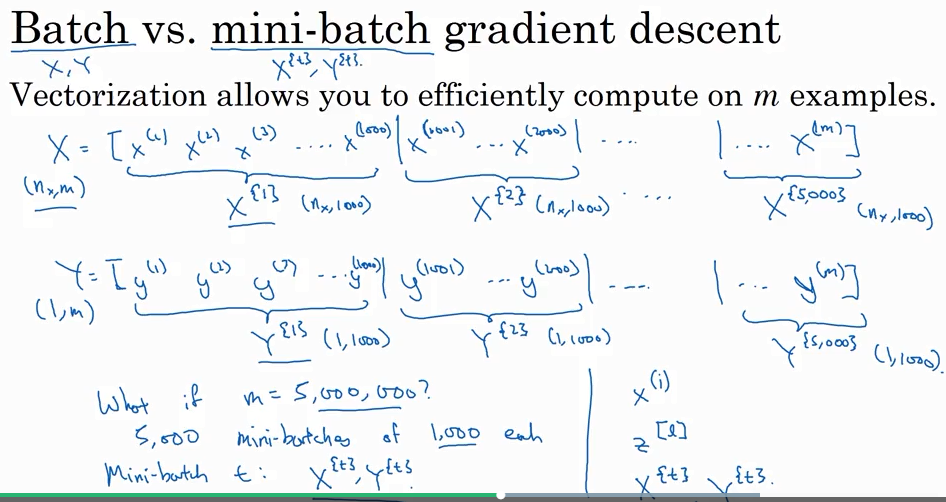 Batch vs. mini-batch gradient descent
X, Y X^{t}, Y^{t}.
Vectorization allows you to efficiently compute on m examples.
X = [x^(1) x^(2) x^(3) .... x^(1000) | x^(1001) ... x^(2000) | .... | .... x^(m)]
(n_x, m) X^{1} (n_x, 1000) X^{2} (n_x, 1000) ... X^{5,000} (n_x, 1000)
Y = [y^(1) y^(2) y^(3) ... y^(1000) | y^(1001) ... y^(2000) | .... | ... y^(m)]
(1, m) Y^{1} (1, 1000) Y^{2} (1, 1000) Y^{5,000} (1, 1000).
What if m = 5,000,000?
5,000 mini-batches of 1,000 each
Mini-batch t: X^{t}, Y^{t}.
x^(i)
z^[l]
X^{t}, Y^{t}.